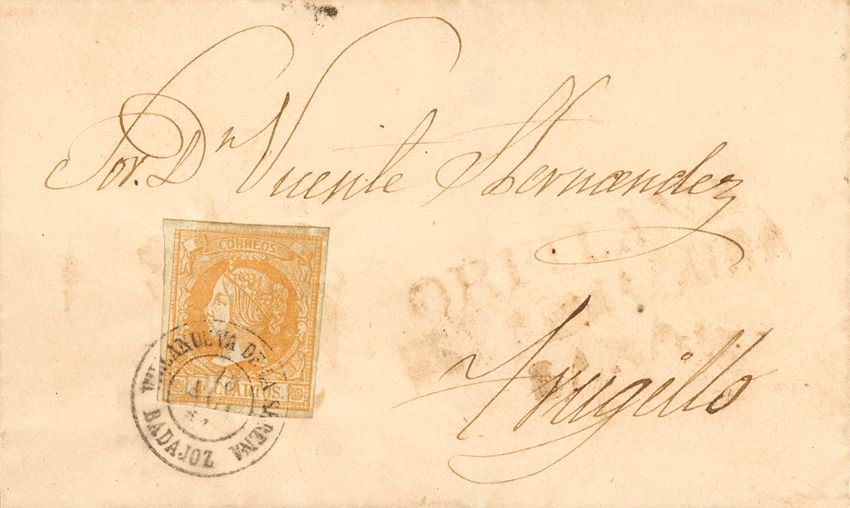 Sor. Dn Vicente Hernandez
Trugillo
CORREOS
4 CUARTOS.
VILLANUEVA DE LA SERENA
BADAJOZ